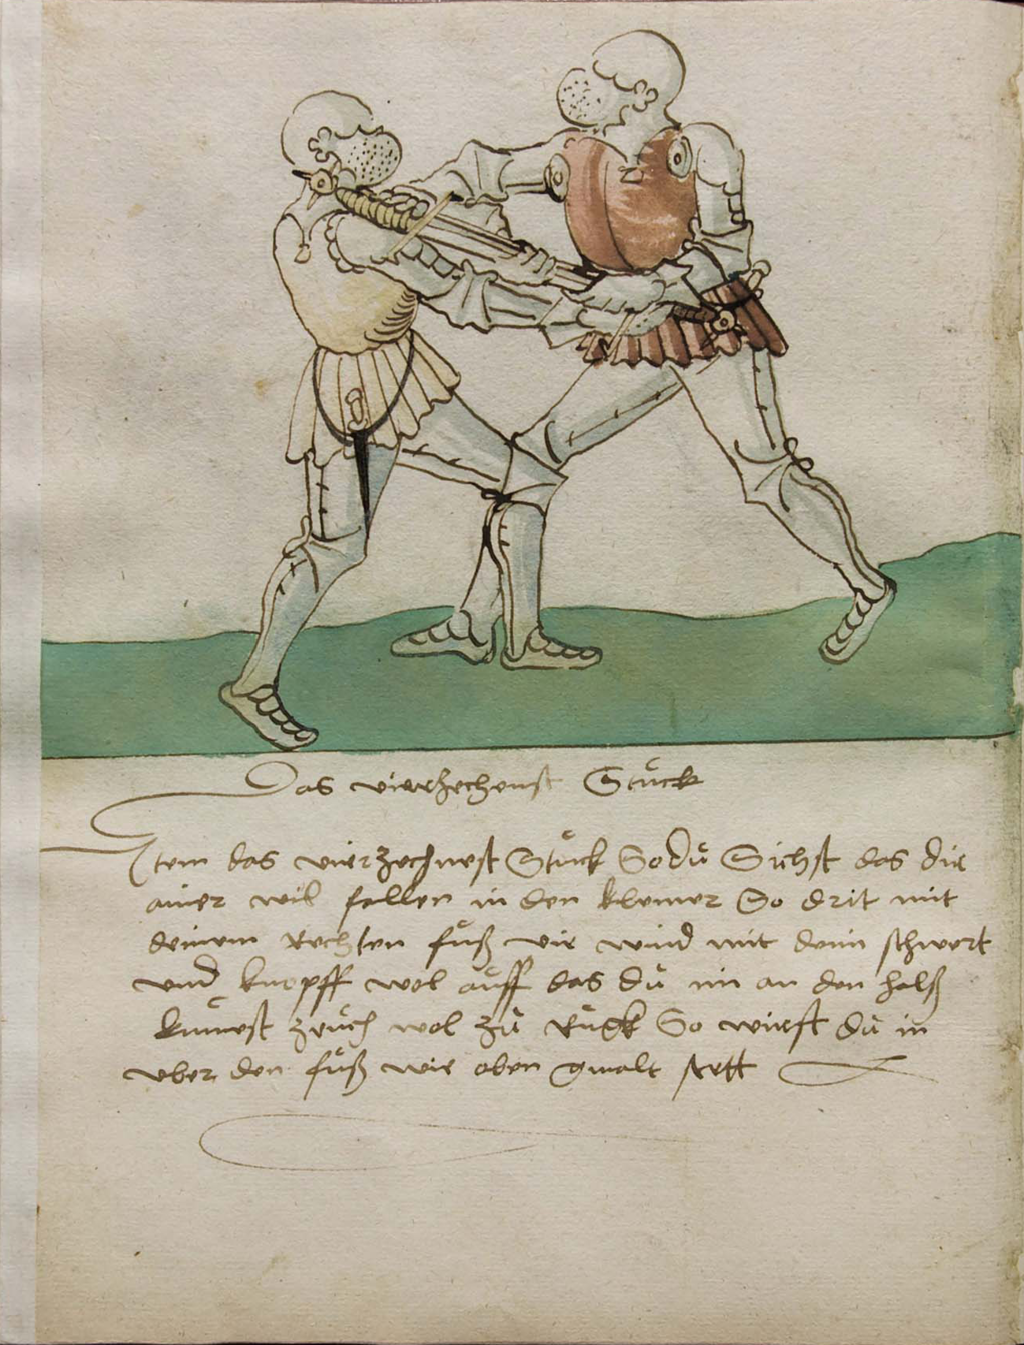 Das vierzechenst Stuck
Item das vierzechnest Stuck So du Sichst das dir
ainer wil fallen in den klemer So drit mit
deinem Rechten fuß vir wind mit deim schwert
vnd knopff wol auff das du im an den halß
kumest zeuch wol zu Rugk So wirfst du in
vber den fuß wie oben gmalt stett